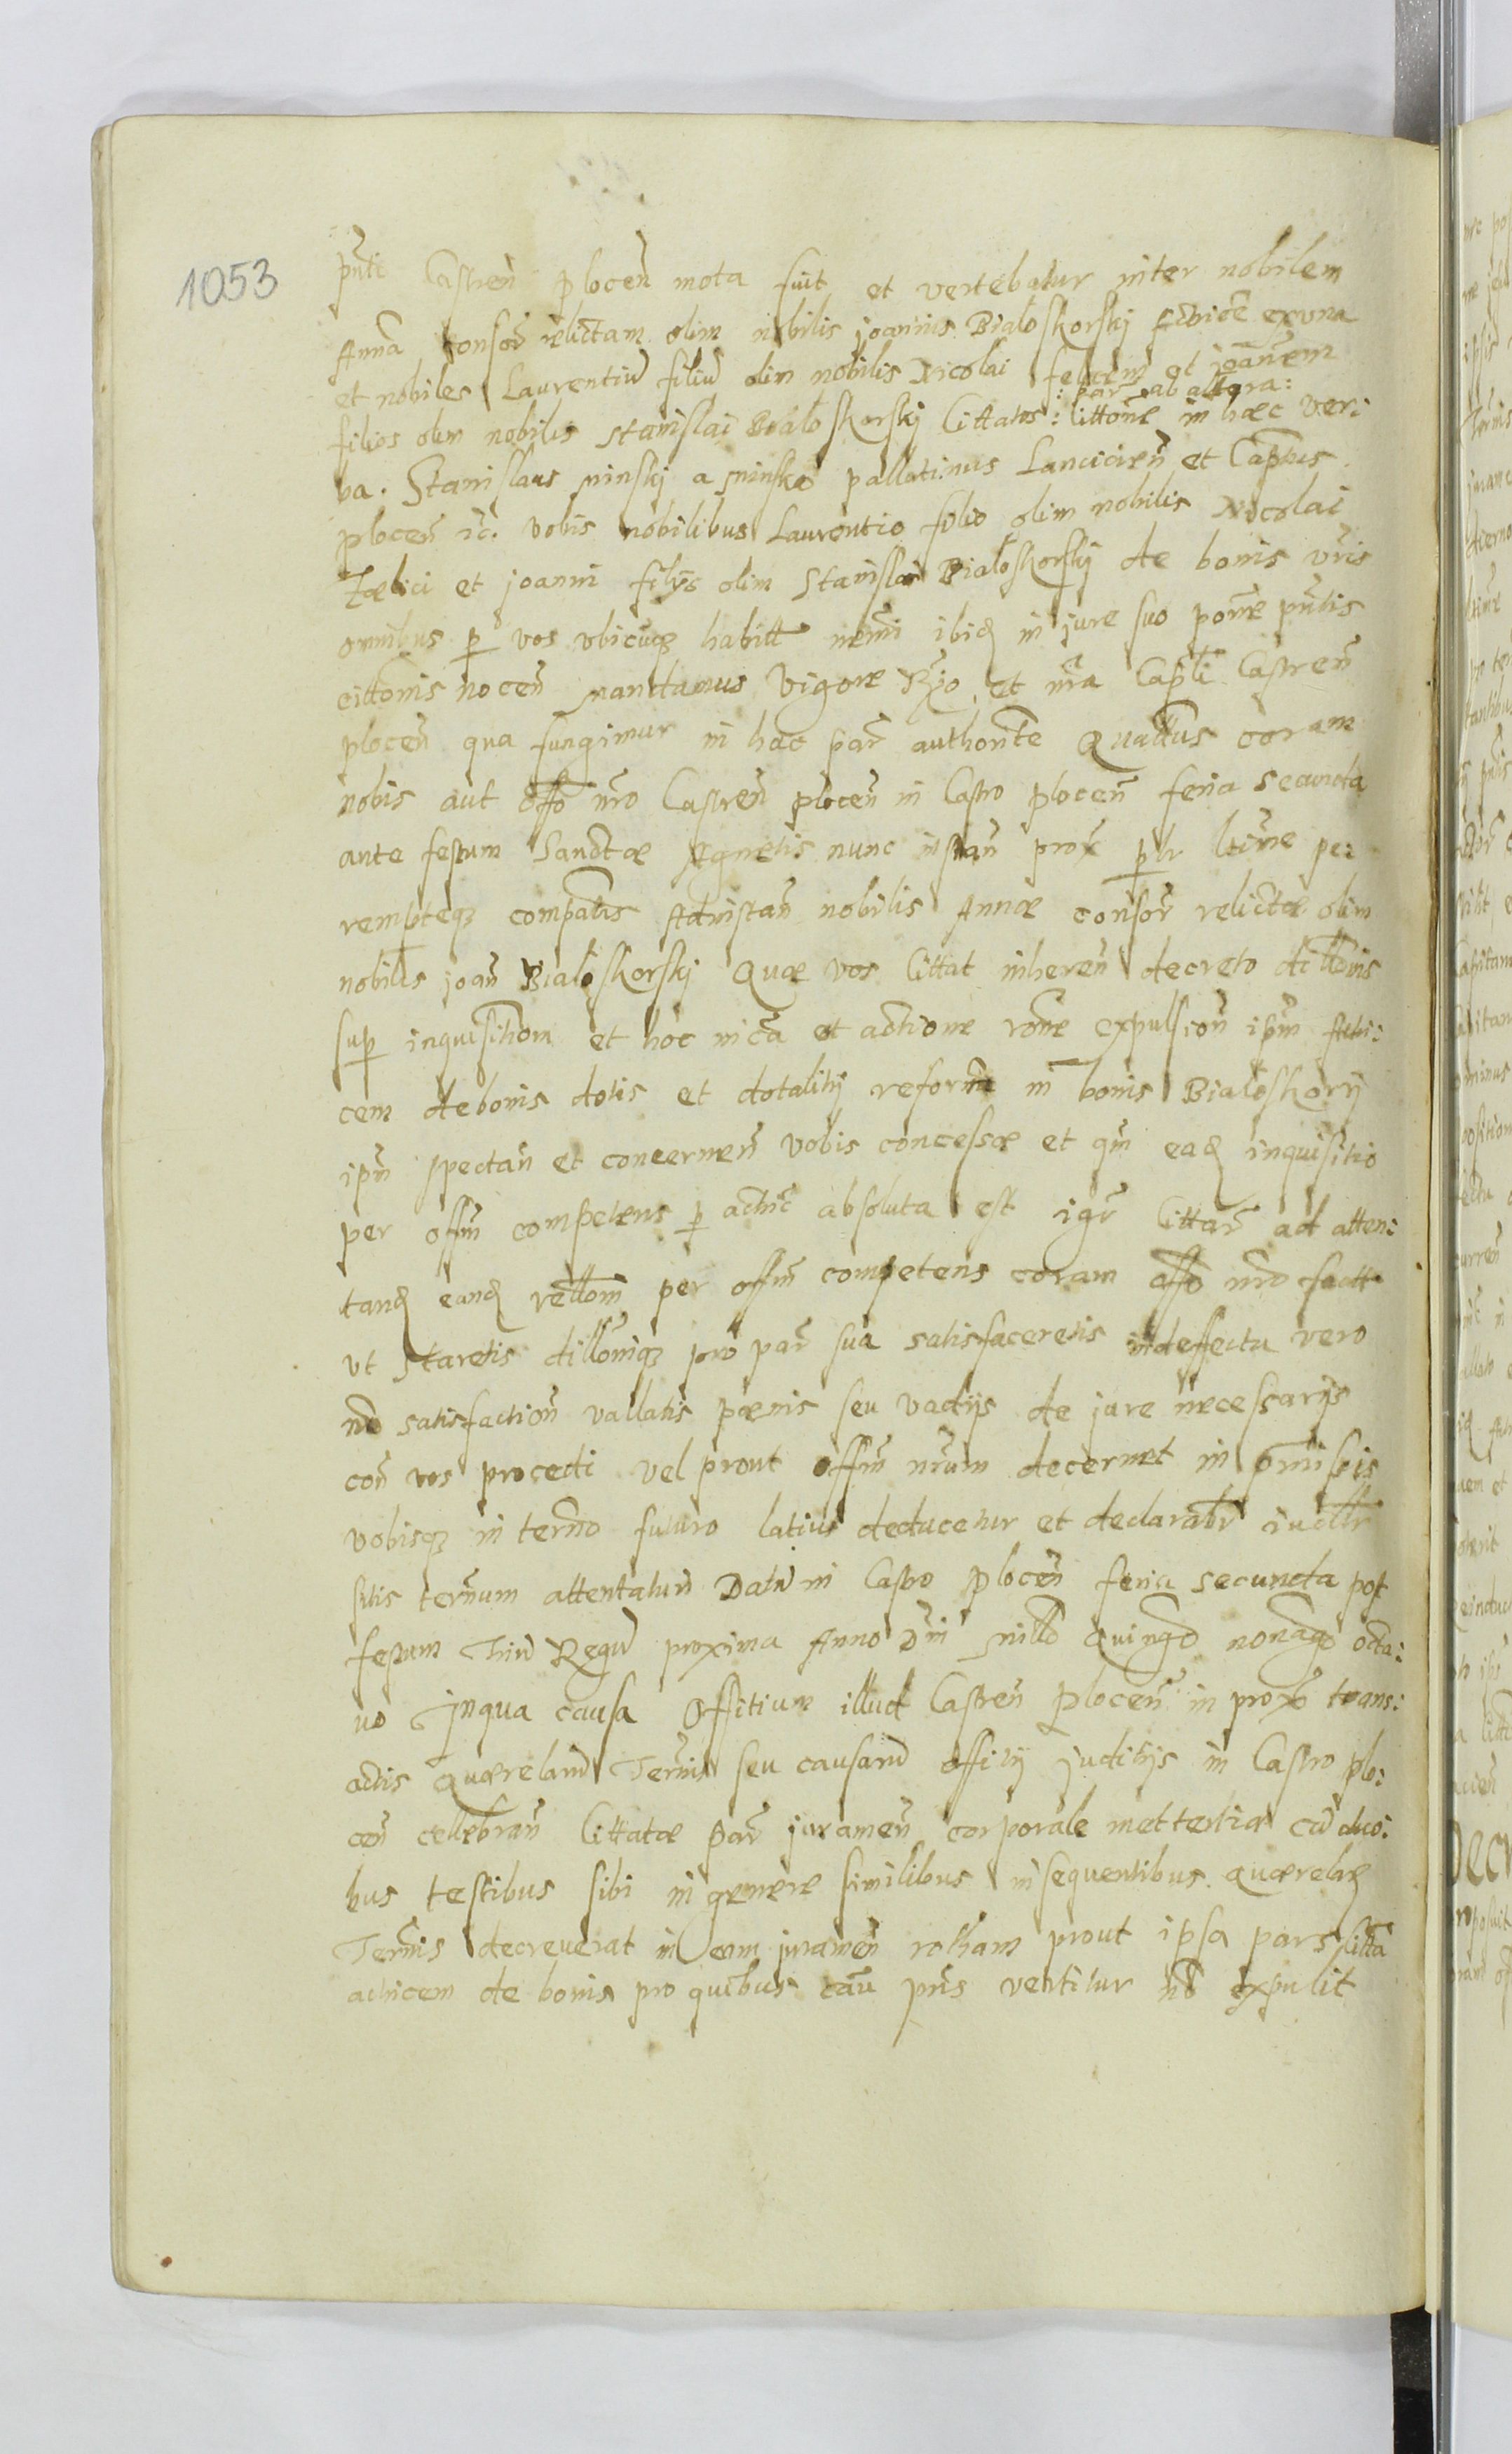 1053
pnti Castren̄ plocen̄ mota fuit et vertebatur inter nobilem
Annā consor̄ relictam olim nobilis joannis Bialoskorskj actricē ex una
et nobiles Laurentiū filiū olim nobilis Nicolai felicem et joānem
: par̄ ab altera:
filios olim nobilis Stanislai Bialoskorskj Cittatos: cittōne in hæc ver:
ba. Stanislaus Minskj a Minsko pallatinus Lancicien̄ et Capneus
plocen̄ ic̄. vobis nobilibus Laurentio filio olim nobilis Nicolai
Fælici et joanni filÿs olim Stanislai Bialoskorskj de bonis vr̄is
omnibus p vos vbicūqz habitt nemi ibiq in jure suo pōne pn̄tis
cittonis nocen̄ Mandamus Vigore et nr̄a Capli Castren̄
plocen̄ qua fungimur in hac par̄ authorīte Quattus coram
nobis aut offo nr̄o Castren̄ plocen̄ in Castro plocen̄ feria secunda
ante festum Sanctæ Agnetis nunc instan̄ prox̄ ptr pe:
rempteqz compatis Ad instan̄ nobilis Annæ consor̄ relictæ olim
nobilis joan̄ Bialoskorskj Quæ vos Cittat inheren̄ decreto dillōnis
sup inquisitiom̄ et hoc in cā et actione rōne expulsion̄ ipm̄ Actri:
cem de bonis dotis et dotalitij reforma in bonis Bialoskorÿ
ipm̄ spectan̄ et concernen̄ vobis concessæ et qm̄ eaq inquisitio
per offm̄ competens p actric̄ absoluta est igr̄ Cittar̄ ad atten:
tanq eanq rellom̄ per offm̄ competens coram offo nr̄o factt
vt staretis dillōniqz pro par̄ sua satisfaceretis in deffectu vero
nō satisfaction̄ vallatis pænis seu vadijs de jure necessarijs
con̄ vos procedi vel prout offm̄ nr̄um decernet in pr̄missis
vobisqz in termo futuro latius deducetur et declarabr̄ iudllr
sitis ternum attentaturi Datū in Castro plocen̄ feria secunda post
festum Triū Regū proxima Anno Dn̄i Millō Quingō nonagō octa:
uo Jnqua causa Offitium illud Castren̄ plocen̄ in proxō trans:
actis Quærelarū Ternis seu causarū offitij juditijs in Castro plo:
cen̄ celebran̄ Cittatæ par̄ juramen̄ corporale mettertiæ cū duo:
bus testibus sibi in genere similibus in sequentibus Quærelarq
Ternis decreuerat in eam juramen̄ rotham prout ipsa pars citta
actricem de bonis pro quibus cāu pn̄s vertitur nō expulit